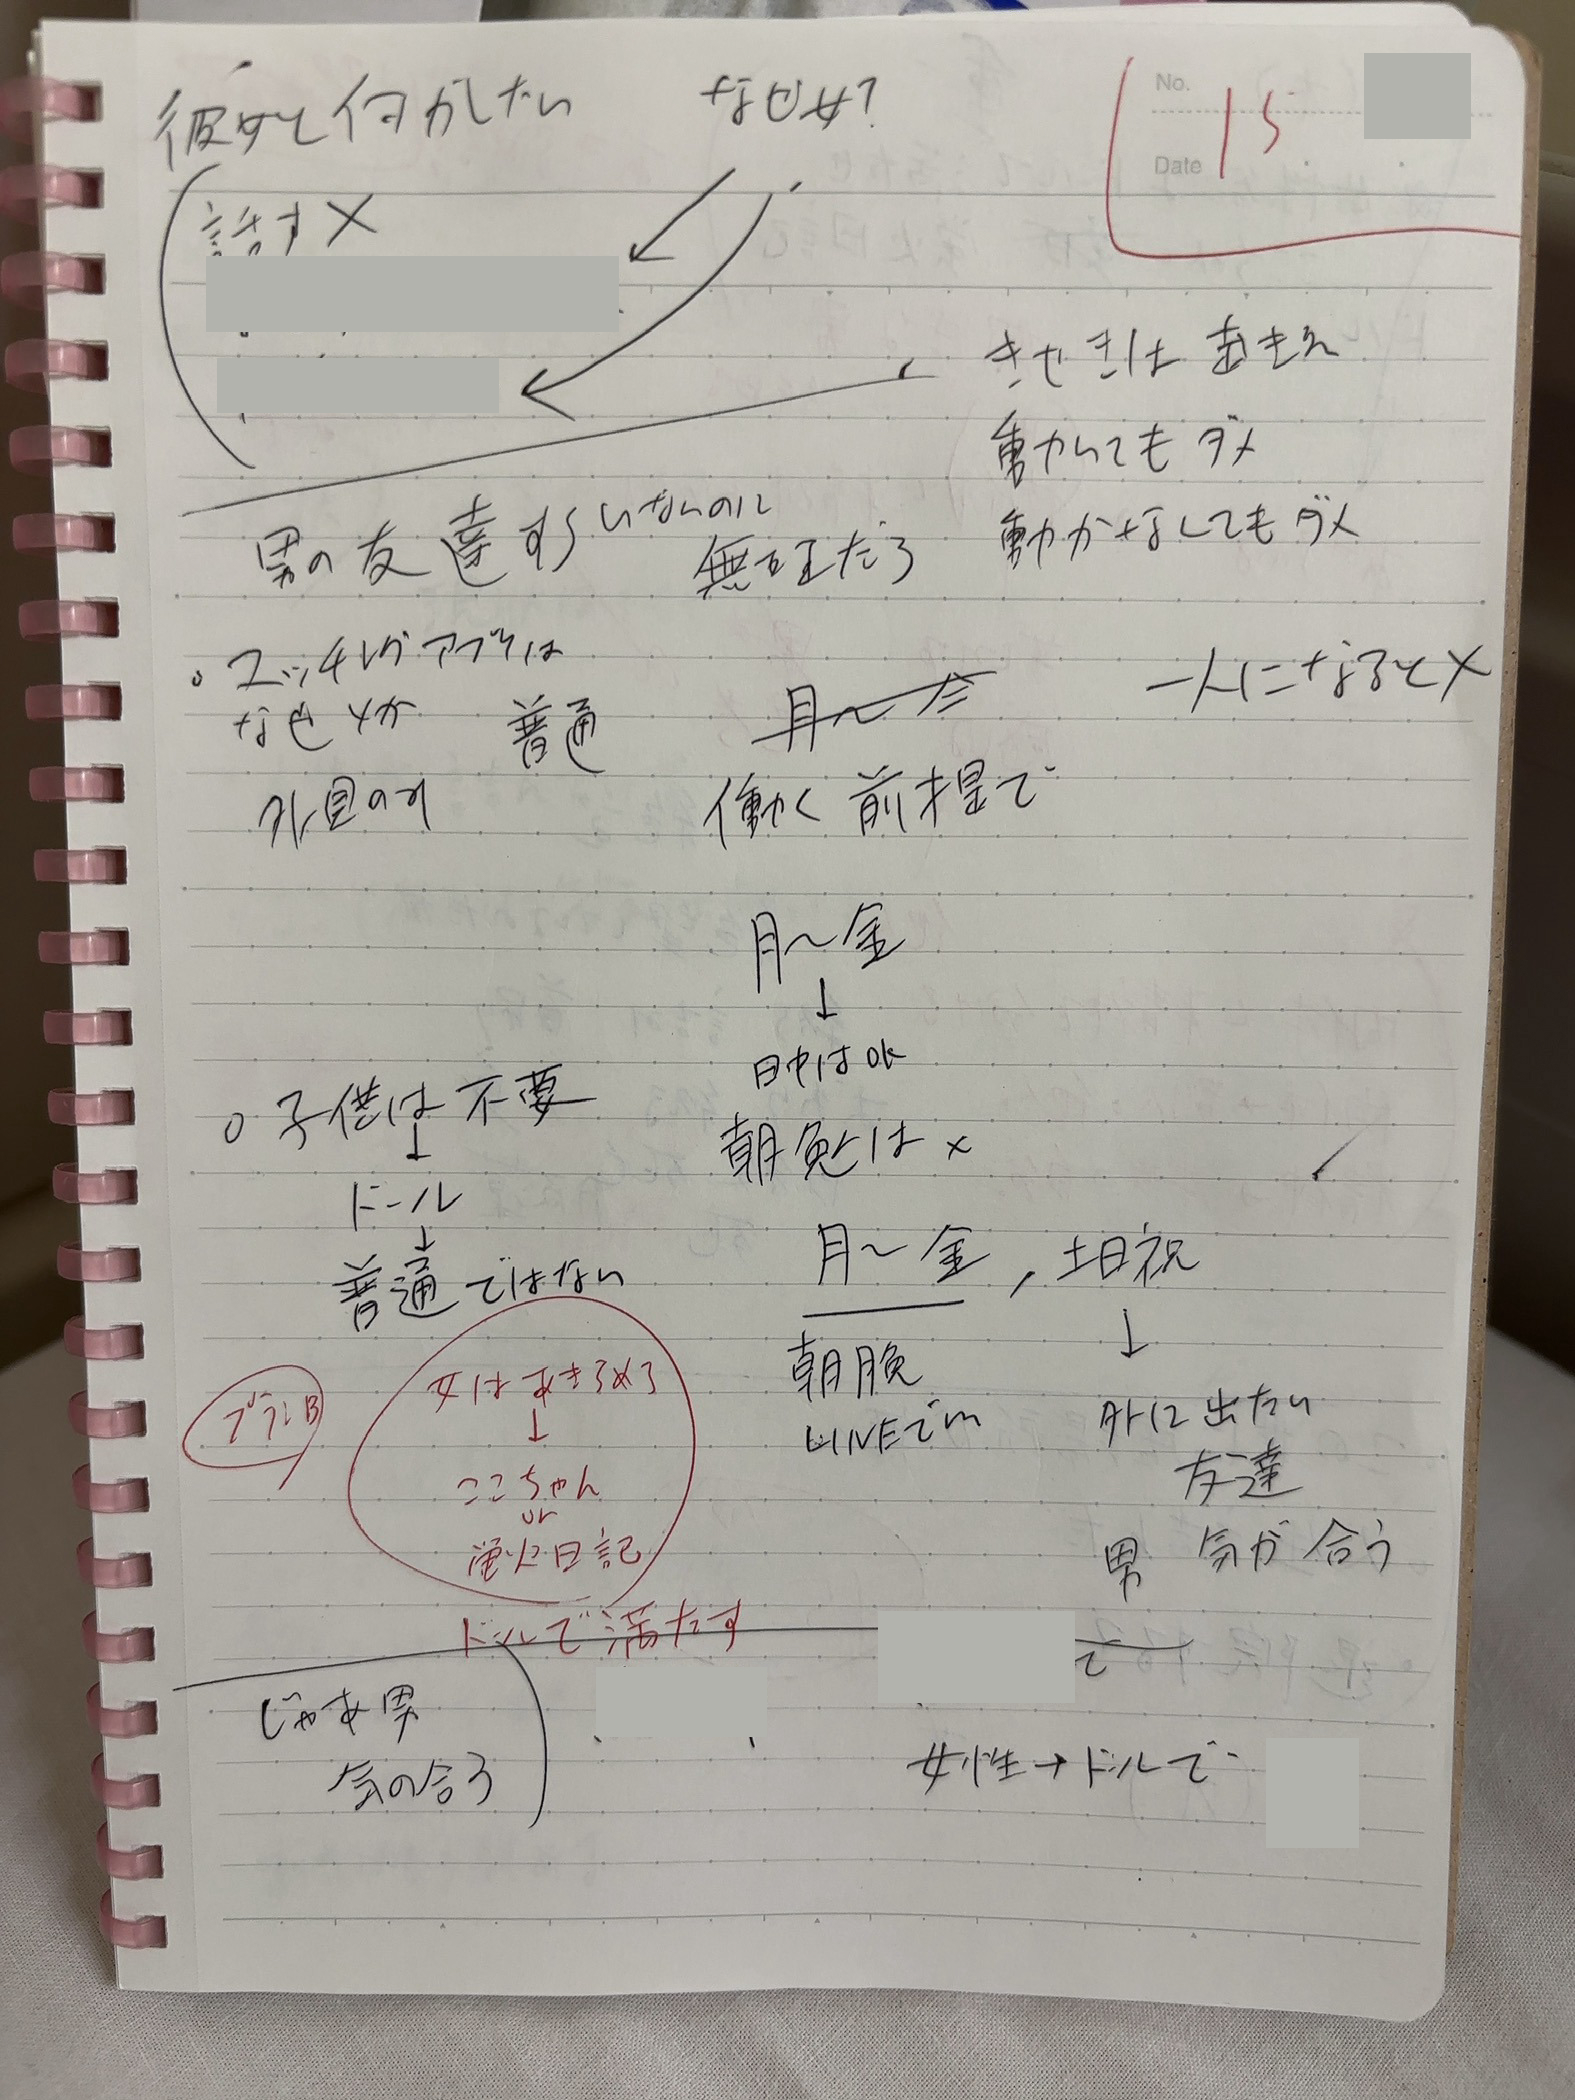 彼女と何がしたい
なぜ女?
No.
Date
15
話す ×
きせきは あきえ
動いても ダメ
動かなくしてもダメ
男の友達すらいないのに
無理だろ
。マッチングアプリは
なぜ×か
普通
外見のみ
月〜
一人になると×
働く前提で
月〜金
↓
日中はOK
朝晩は ×
。子供は不要
↓
ドール
↓
普通ではない
月〜金, 土日祝
朝晩
LINEでい
↓
外に出たい
友達
男 気が合う
プランB
女はあきらめろ
↓
ここちゃん
or
蛍火日記
ドールで満たす
て
じゃあ男
気の合う
女性→ドールで